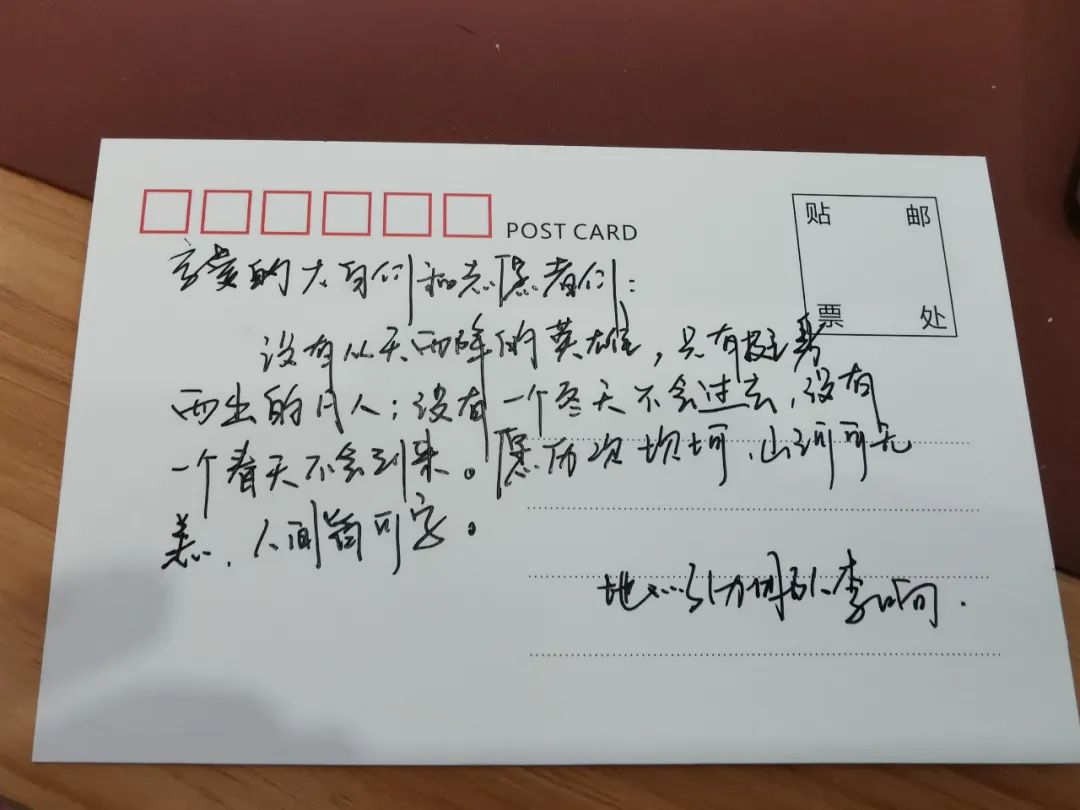 POST CARD
贴 邮
票 处
亲爱的大白们和志愿者们：
没有从天而降的英雄，只有挺身
而出的凡人；没有一个冬天不会过去，没有
一个春天不会到来。愿历次坎坷，山河可无
恙、人间皆可安。
地心引力团队李响.